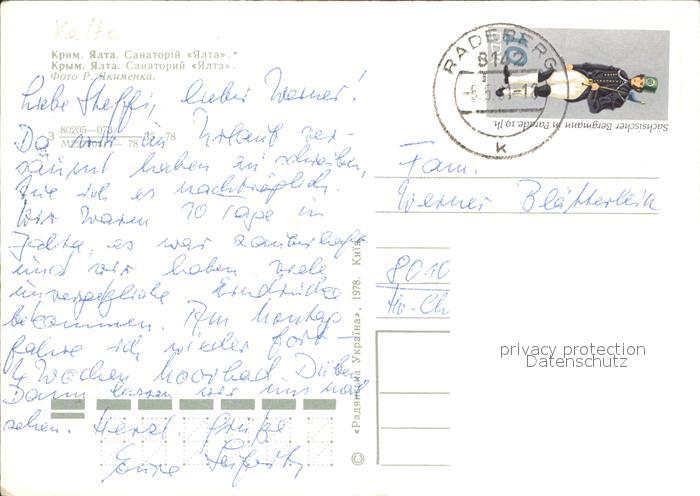 Yalta
Крим. Ялта. Санаторій «Ялта».
Крым. Ялта. Санаторий «Ялта».
Фото Р. Якименка.
Liebe Steffi, lieber Werner!
Da wir im Urlaub ver-
säumt haben zu schreiben,
tue ich es nachträglich.
Wir waren 10 Tage in
Jalta, es war zauberhaft
und wir haben viele
unvergeßliche Eindrücke
bekommen. Am Montag
fahre ich wieder fort -
4 Wochen Moorbad Düben
Dann lassen wir uns mal
sehen. Herzl. Grüße
80205-073
78
«Радянська Україна», 1978. Київ
©
RADEBERG
8142
k
Sächsischer Bergmann in Parade, 19. Jh.
Fam.
Werner Blätterlein
8010
privacy protection
Datenschutz